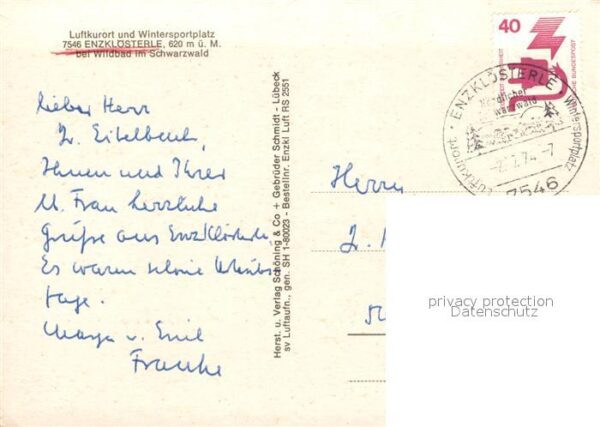 Luftkurort und Wintersportplatz
7546 ENZKLÖSTERLE, 620 m ü. M.
bei Wildbad im Schwarzwald
lieber Herr
Dr.
Ihnen und Ihrer
Frau herzliche
Grüße aus Enzklösterle,
Es waren schöne Urlaubs
tage.
v. Emil
Franke
Herst. u. Verlag Schöning & Co + Gebrüder Schmidt - Lübeck
sv Luftaufn., gen. SH 1-80023 - Bestellnr. Enzkl Luft RS 2551
40
DEUTSCHE BUNDESPOST
Luftkurort · ENZKLÖSTERLE · Wintersportplatz
Nördlicher
7546
Herrn
privacy protection
Datenschutz